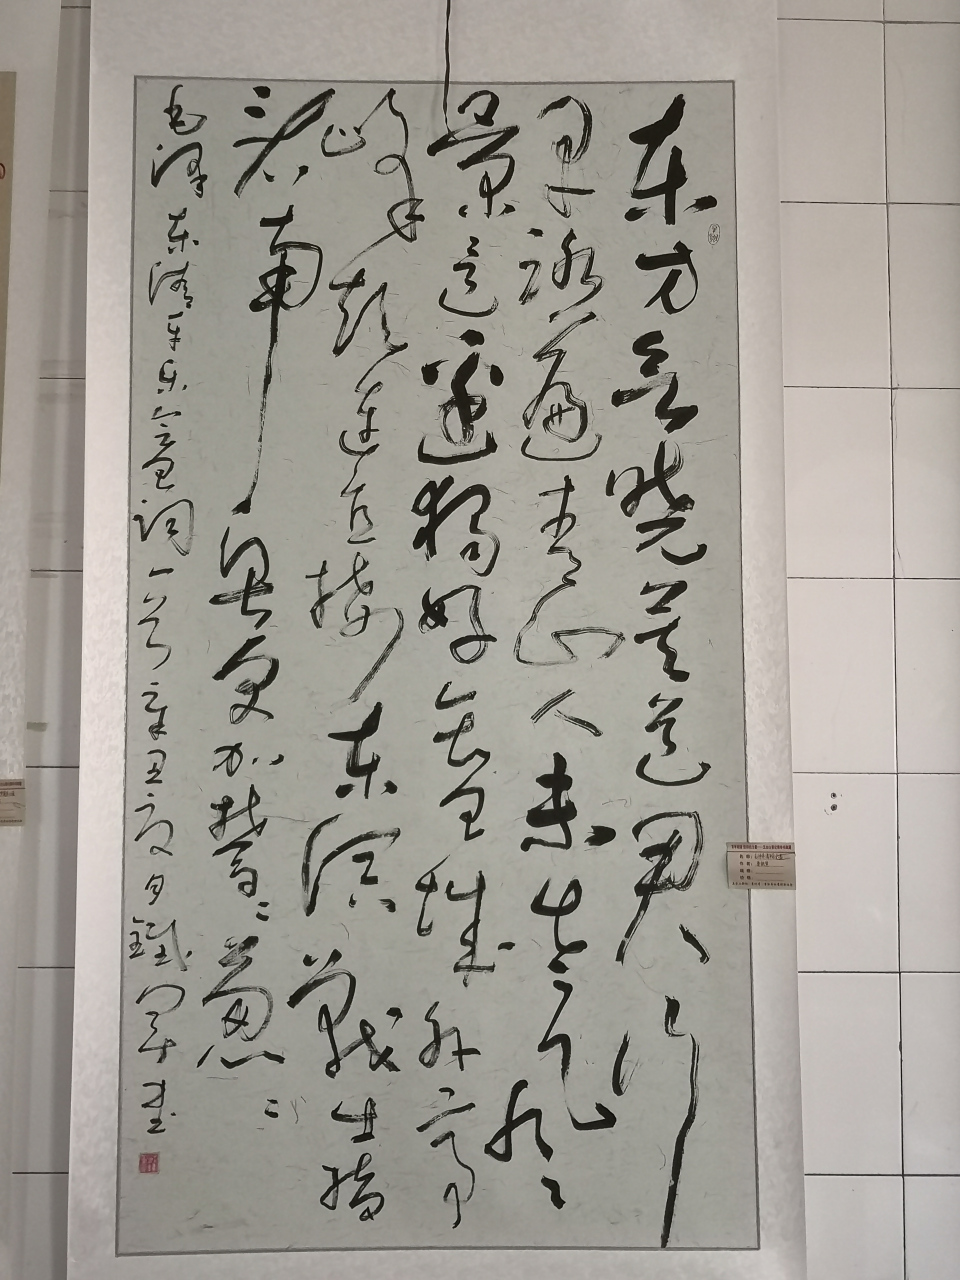 东方欲晓莫道君行
早踏遍青山人未老风
景这边独好会昌城外高
峰颠连直接东溟战士指
看南粤更加郁郁葱葱
毛泽东清平乐会昌词一首辛丑夏月铁军书